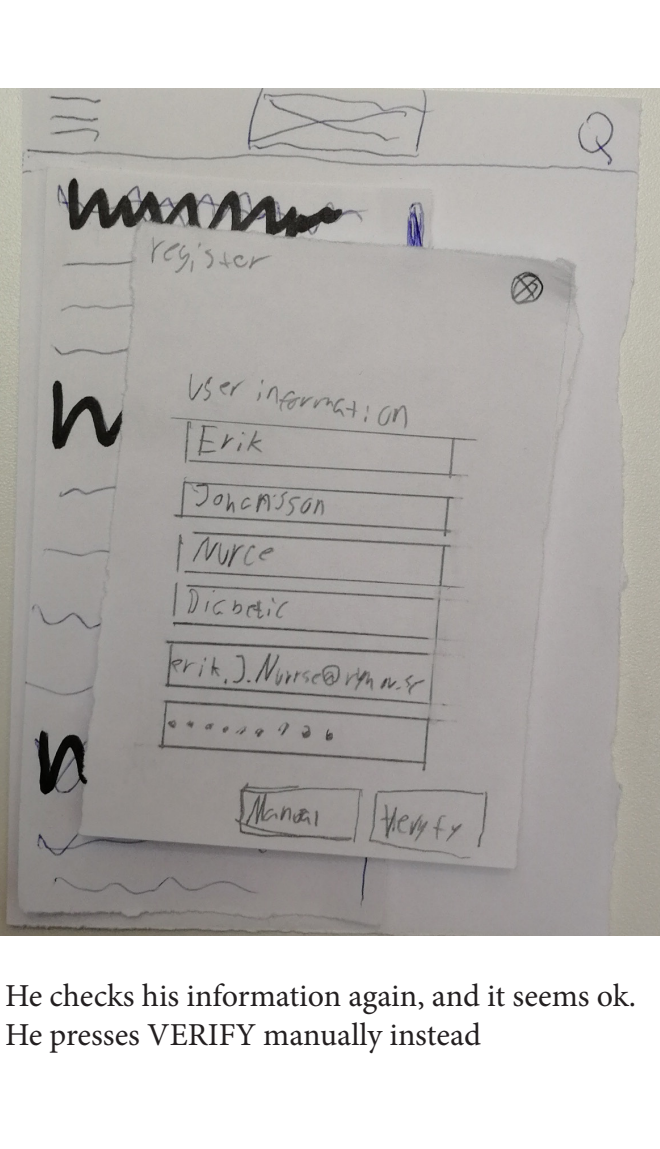 register
User information
Erik
Johansson
Nurce
Diabetic
Manual
Verify
He checks his information again, and it seems ok.
He presses VERIFY manually instead